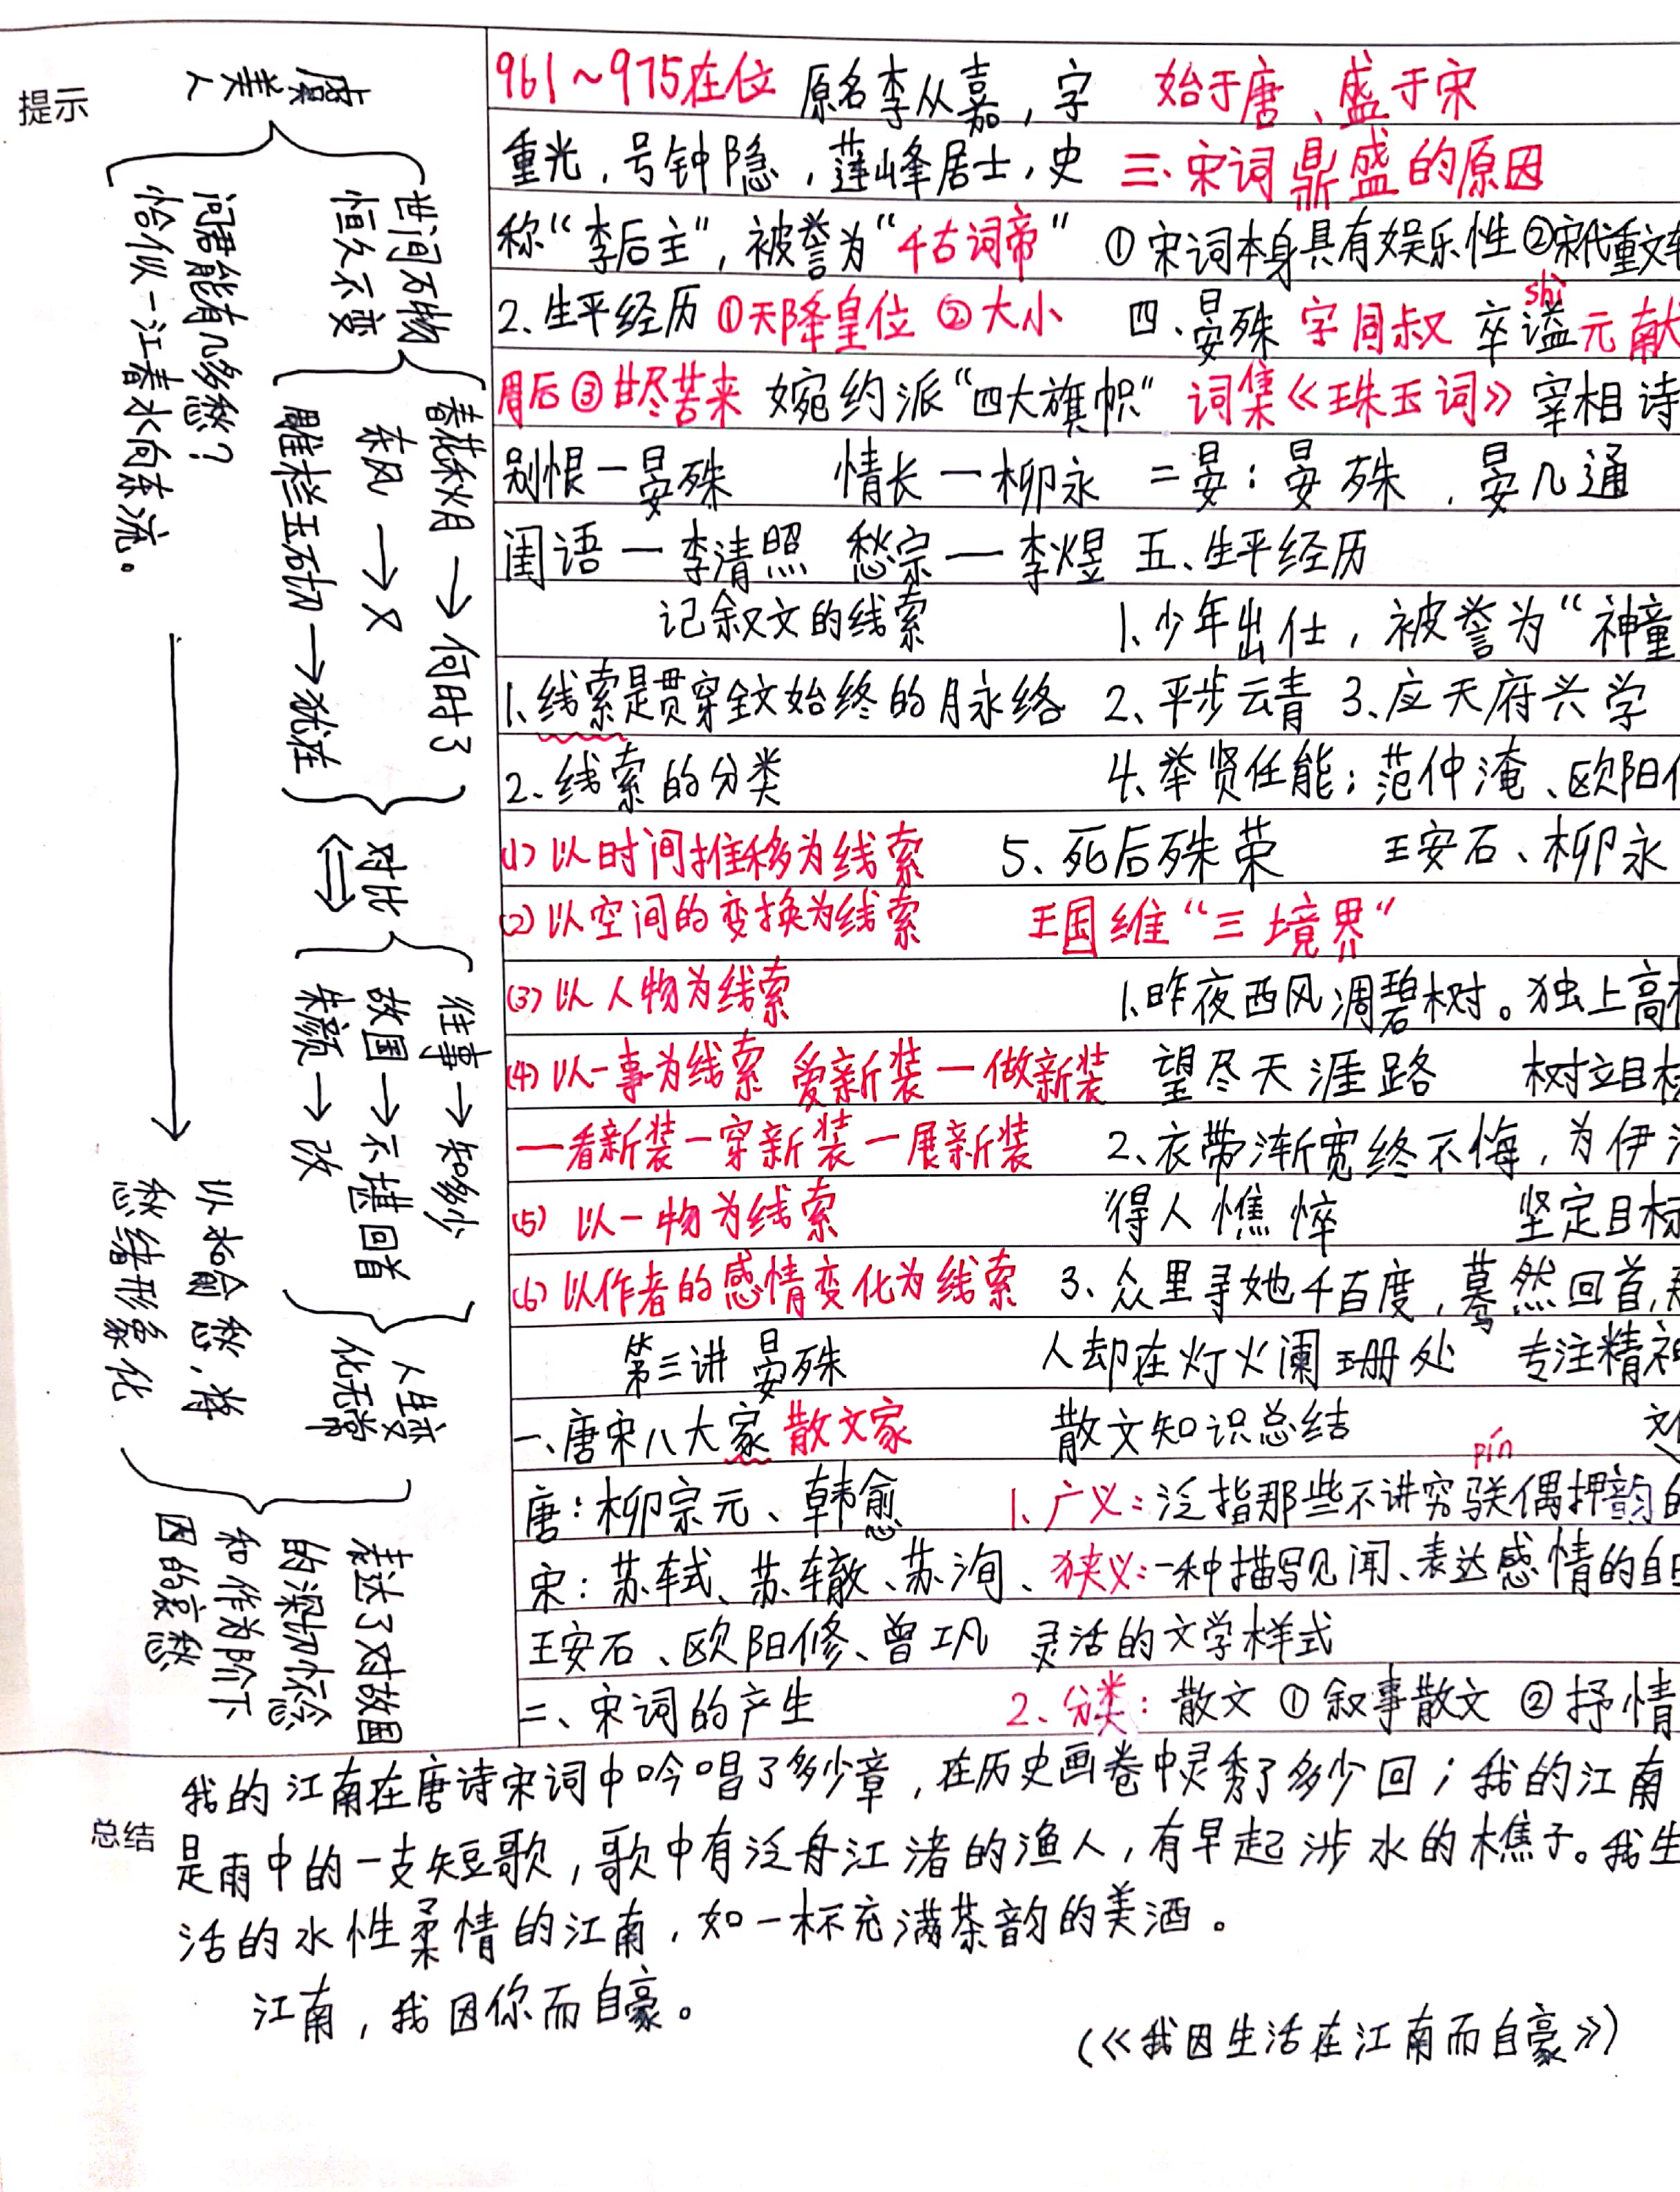 提示
虞美人
世间万物
恒久不变
问君能有几多愁？
恰似一江春水向东流。
春花秋月→何时了
东风→又
雕栏玉砌→犹在
对比
往事→知多少
故国→不堪回首
朱颜→改
人生变
化无常
以水喻愁，将
愁绪形象化
表达了对故国
的深切怀念
和作为阶下
囚的哀愁
961～975在位 原名李从嘉，字
重光，号钟隐，莲峰居士，史
称“李后主”，被誉为“千古词帝”
2、生平经历 ①天降皇位 ②大小
周后 ③甘尽苦来 婉约派“四大旗帜”
别恨一晏殊 情长一柳永
闺语一李清照 愁宗一李煜
记叙文的线索
1、线索是贯穿全文始终的脉络
2、线索的分类
(1) 以时间推移为线索
(2) 以空间的变换为线索
(3) 以人物为线索
(4) 以一事为线索 爱新装一做新装
一看新装一穿新装一展新装
(5) 以一物为线索
(6) 以作者的感情变化为线索
第三讲 晏殊
一、唐宋八大家 散文家
唐：柳宗元、韩愈
宋：苏轼、苏辙、苏洵、
王安石、欧阳修、曾巩
二、宋词的产生
始于唐、盛于宋
三、宋词鼎盛的原因
①宋词本身具有娱乐性 ②宋代重文
shì
四、晏殊 字同叔 卒谥元献
词集《珠玉词》 宰相诗
二晏：晏殊，晏几通
五、生平经历
1、少年出仕，被誉为“神童
2、平步云青 3、应天府兴学
4、举贤任能：范仲淹、欧阳
5、死后殊荣 王安石、柳永
王国维“三境界”
1、昨夜西风凋碧树。独上高
望尽天涯路 树立目
2、衣带渐宽终不悔，为伊
得人憔悴 坚定目标
3、众里寻她千百度，蓦然回首，
人却在灯火阑珊处 专注精神
散文知识总结
pín
1、广义：泛指那些不讲穷骈偶押韵的
狭义：一种描写见闻、表达感情的自由
灵活的文学样式
2、分类：散文 ①叙事散文 ②抒情
总结
我的江南在唐诗宋词中吟唱了多少章，在历史画卷中灵秀了多少回；我的江南
是雨中的一支短歌，歌中有泛舟江渚的渔人，有早起涉水的樵子。我生
活的水性柔情的江南，如一杯充满茶韵的美酒。
江南，我因你而自豪。
（《我因生活在江南而自豪》）